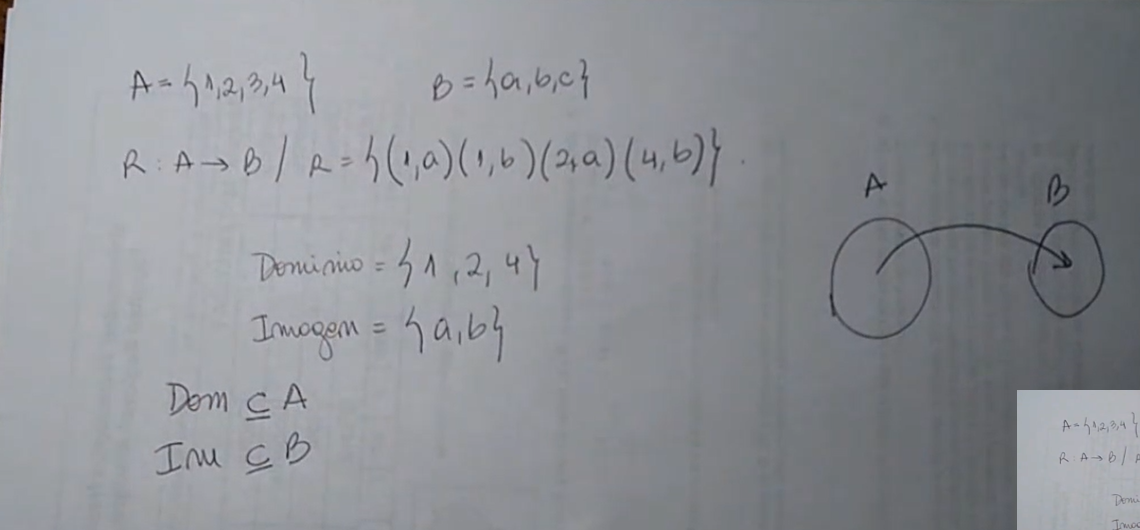 A = {1,2,3,4} B = {a,b,c}
R : A → B / R = {(1,a)(1,b)(2,a)(4,b)}.
Dominio = {1,2,4}
Imagem = {a,b}
Dom ⊆ A
Im ⊆ B
A B
A={1,2,3,4}
R : A → B /
Domi
Imag